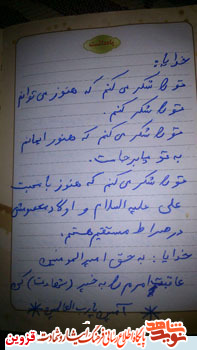 یادداشت
خدایا:
تو را شکر می کنم که هنوز می توانم
تو را شکر کنم.
تو را شکر می کنم که هنوز ایمانم
به تو پابرجاست.
تو را شکر می کنم که هنوز با محبت
علی علیه السلام و اولاد معصومش
در صراط مستقیم هستم.
خدایا: به حق امیرالمومنین
عاقبت امرم را به خیر (شهادت) کن
آمین یا رب العالمین
نوید شاهد
پایگاه اطلاع رسانی فرهنگ ایثار و شهادت قزوین